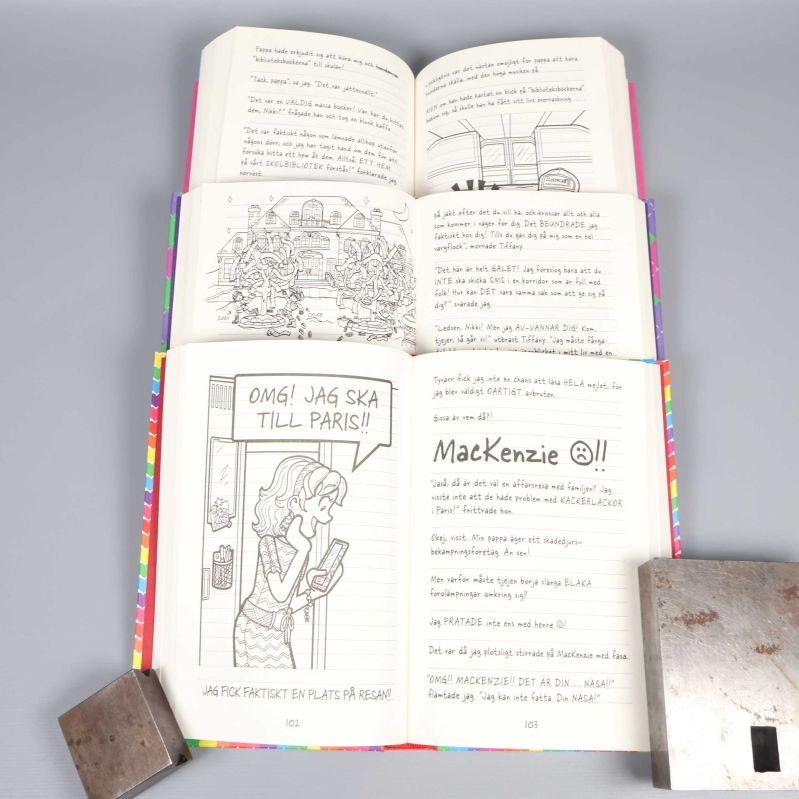 Pappa hade erbjudit sig att köra mig och hundarna
"biblioteksböckerna" till skolan!
"Tack, pappa", sa jag. "Det var jättesnällt."
"Det var en VÄLDIG massa böcker! Var har du hittat
dem, Nikki?" frågade han och tog en klunk kaffe.
"Det var faktiskt någon som lämnade allihop utanför
någons dörr, och jag har tagit hand om dem för att
försöka hitta ett hem åt dem. Alltså, ETT HEM
på vårt SKOLBIBLIOTEK förstås!" förklarade jag
nervöst.
var det nästan omöjligt för pappa att höra
hundarna skälla, med den höga musiken på.
MEN om han hade kastat en blick på "biblioteksböckerna"
bakom sig, så skulle han ha fått sitt livs överraskning.
på jakt efter det du vill ha, och krossar allt och alla
som kommer i vägen för dig. Det BEUNDRADE jag
faktiskt hos dig! Tills du gav dig på mig som en hel
vargflock", morrade Tiffany.
"Det här är helt GALET! Jag föreslog bara att du
INTE ska skicka SMS i en korridor som är full med
folk! Hur kan DET vara samma sak som att ge sig på
dig?" svarade jag.
"Ledsen, Nikki! Men jag AV-VÄNNAR DIG! Kom,
tjejer, så går vi!" utbrast Tiffany. "Jag måste fånga
i mitt liv med en
OMG! JAG SKA
TILL PARIS!!
JAG FICK FAKTISKT EN PLATS PÅ RESAN!!
102
Tyvärr fick jag inte en chans att läsa HELA mejlet, för
jag blev väldigt OARTIGT avbruten.
Gissa av vem då?!
MacKenzie ☹!!
"Jaså, då är det väl en affärsresa med familjen? Jag
visste inte att de hade problem med KACKERLACKOR
i Paris!" fnittrade hon.
Okej, visst. Min pappa äger ett skadedjurs-
bekämpningsföretag. Än sen!
Men varför måste tjejen börja slänga ELAKA
förolämpningar omkring sig?
Jag PRATADE inte ens med henne ☹!
Det var då jag plötsligt stirrade på MacKenzie med fasa.
"OMG!! MACKENZIE!! DET ÄR DIN ... NÄSA!!"
flämtade jag. "Jag kan inte fatta. Din NÄSA!"
103